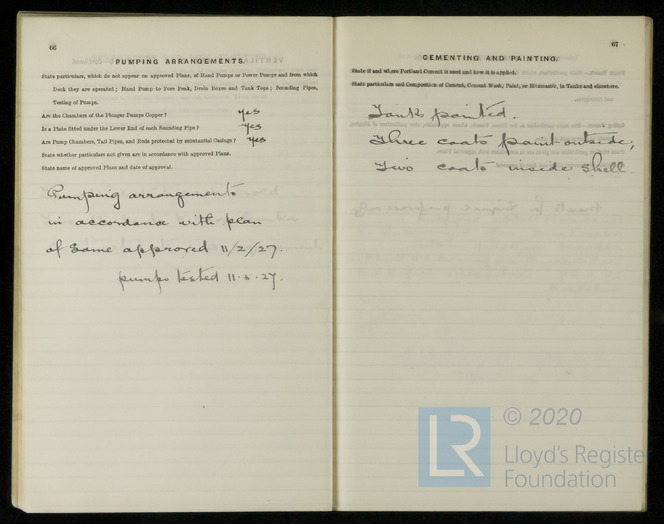 66
PUMPING ARRANGEMENTS.
State particulars, which do not appear on approved Plans, of Hand Pumps or Power Pumps and from which
Deck they are operated; Hand Pump to Fore Peak, Drain Boxes and Tank Tops; Sounding Pipes,
Testing of Pumps.
Are the Chambers of the Plunger Pumps Copper? Yes
Is a Plate fitted under the Lower End of each Sounding Pipe? Yes
Are Pump Chambers, Tail Pipes, and Rods protected by substantial Casings? Yes
State whether particulars not given are in accordance with approved Plans.
State name of approved Plans and date of approval.
Pumping arrangements
in accordance with plan
of same approved 11/2/27.
pumps tested 11.5.27.
67
CEMENTING AND PAINTING.
State if and where Portland Cement is used and how it is applied.
State particulars and Composition of Cement, Cement Wash, Paint, or Bitumastic, in Tanks and elsewhere.
Tank painted.
Three coats paint outside,
Two coats inside shell.
LR
© 2020
Lloyd's Register
Foundation